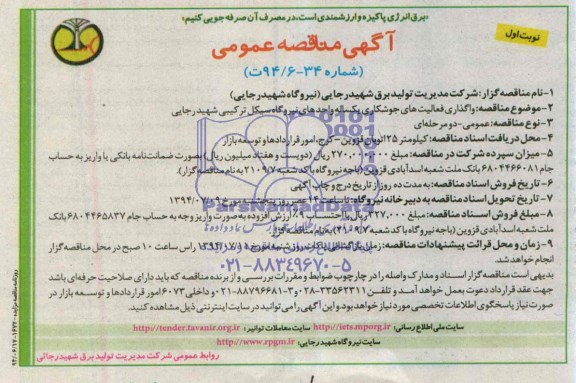 «برق انرژی پاکیزه و ارزشمندی است، در مصرف آن صرفه جویی کنیم»
نوبت اول
آگهی مناقصه عمومی
(شماره ۳۴-۹۴/۶ت)
۱-نام مناقصه گزار: شرکت مدیریت تولید برق شهید رجایی (نیروگاه شهید رجایی)
۲-موضوع مناقصه: واگذاری فعالیت های جوشکاری یکساله واحدهای نیروگاه سیکل ترکیبی شهید رجایی
۳-نوع مناقصه: عمومی-دو مرحله‌ای
۴-محل دریافت اسناد مناقصه: کیلومتر ۲۵ اتوبان قزوین - کرج، امور قراردادها و توسعه بازار
۵-میزان سپرده شرکت در مناقصه: مبلغ ۲۷۰٬۰۰۰٬۰۰۰ ریال (دویست و هفتاد میلیون ریال) بصورت ضمانت‌نامه بانکی یا واریز به حساب
جام ۶۸۰۴۴۶۶۰۸۱ بانک ملت شعبه اسدآبادی قزوین (باجه نیروگاه با کد شعبه ۲۱۰۹/۷ به نام مناقصه گزار).
۶-تاریخ فروش اسناد مناقصه: به مدت ده روز از تاریخ درج و چاپ آگهی
۷-تاریخ تحویل اسناد مناقصه به دبیرخانه نیروگاه: تا ساعت ۱۴ عصر روز پنجشنبه مورخ
۸-مبلغ فروش اسناد مناقصه: مبلغ ۳۲۷٬۰۰۰ ریال با احتساب ۹٪ ارزش افزوده به صورت واریز وجه به حساب جام ۶۸۰۴۴۶۵۸۳۷ بانک
ملت شعبه اسدآبادی قزوین (باجه نیروگاه با کد شعبه ۲۱۰۹/۷) به نام مناقصه گزار.
۹-زمان و محل قرائت پیشنهادات مناقصه: زمان بازگشائی پاکات روز شنبه مورخ ۱۳۹۴/۰۷/۱۱ راس ساعت ۱۰ صبح در محل مناقصه گزار
انجام خواهد شد.
۰۲۱-۸۸۳۴۹۶۷۰-۵
بدیهی است مناقصه گزار اسناد و مدارک واصله را در چارچوب ضوابط و مقررات بررسی و از برنده مناقصه که باید دارای صلاحیت حرفه‌ای باشد
جهت عقد قرارداد دعوت بعمل خواهد آمد و تلفن ۳۳۵۶۲۳۱۱-۰۲۸ و ۳-۸۸۷۹۶۶۸۱-۰۲۱ و داخلی ۶۰۷۳ امور قراردادها و توسعه بازار در
صورت نیاز پاسخگوی اطلاعات تخصصی مورد نیاز خواهد بود. و این آگهی را می توانید در سایت اینترنتی ذیل مشاهده کنید.
سایت ملی اطلاع رسانی: http://iets.mporg.ir سایت معاملات توانیر: http://tender.tavanir.org.ir
سایت نیروگاه شهید رجایی: http://www.rpgm.ir
روابط عمومی شرکت مدیریت تولید برق شهید رجائی
ParsNamadData